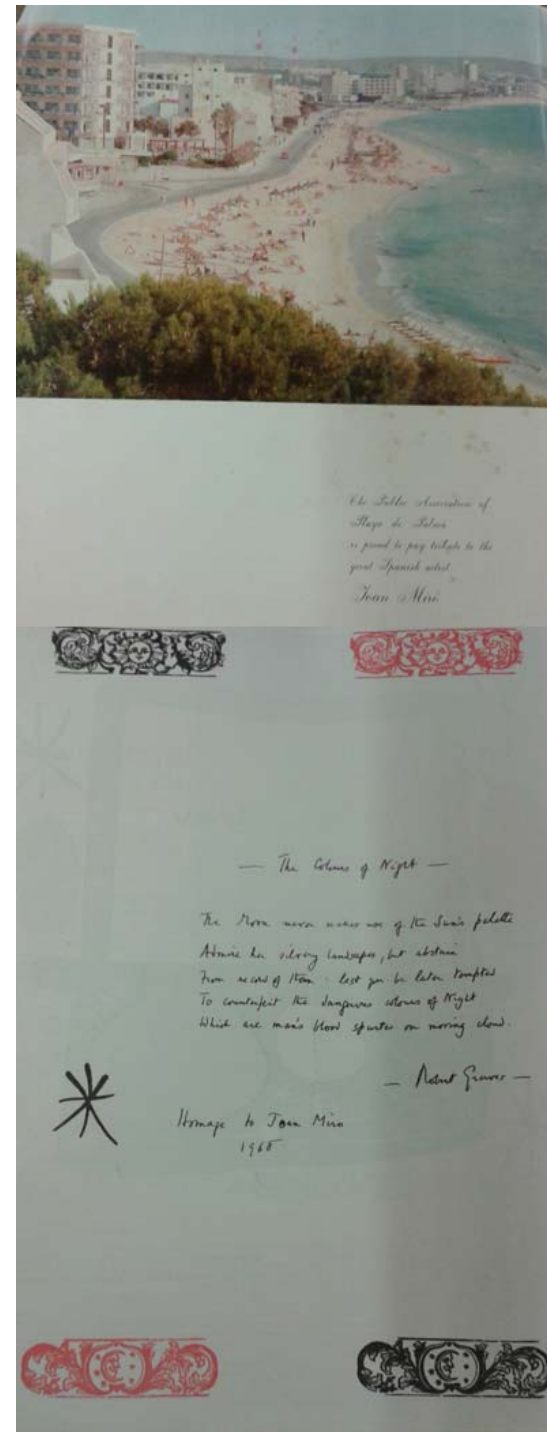 The Public Association of
Playa de Palma
is proud to pay tribute to the
great Spanish artist
Joan Miró
— The Colours of Night —
The Moon never makes use of the Sun's palette
Admire her silvery landscapes, but abstain
From record of them: lest you be later tempted
To counterfeit the dangerous colours of Night
Which are man's blood spurted on moving cloud.
— Robert Graves —
Homage to Joan Miro